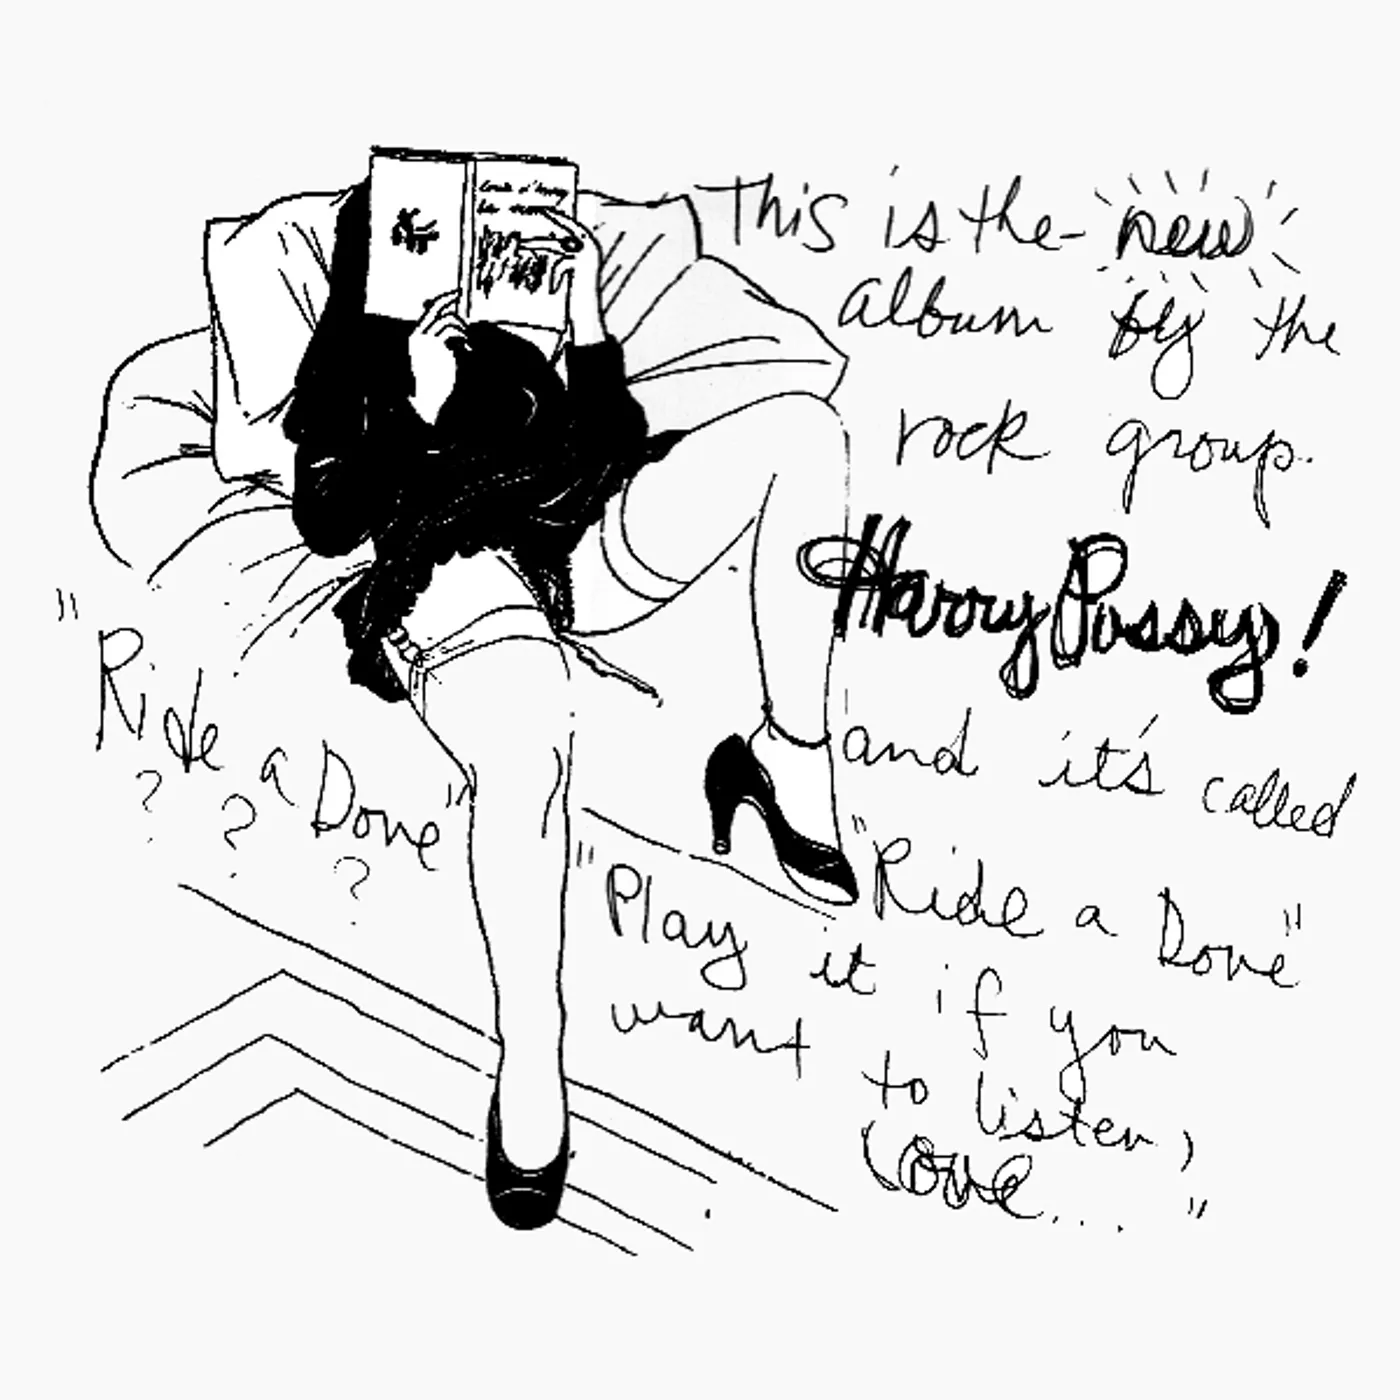 This is the new
album by the
rock group
Harry Pussy!
and it's called
"Ride a Dove"
"Play it if you
want to listen,
Love... "
"Ride a Dove"
? ? ?